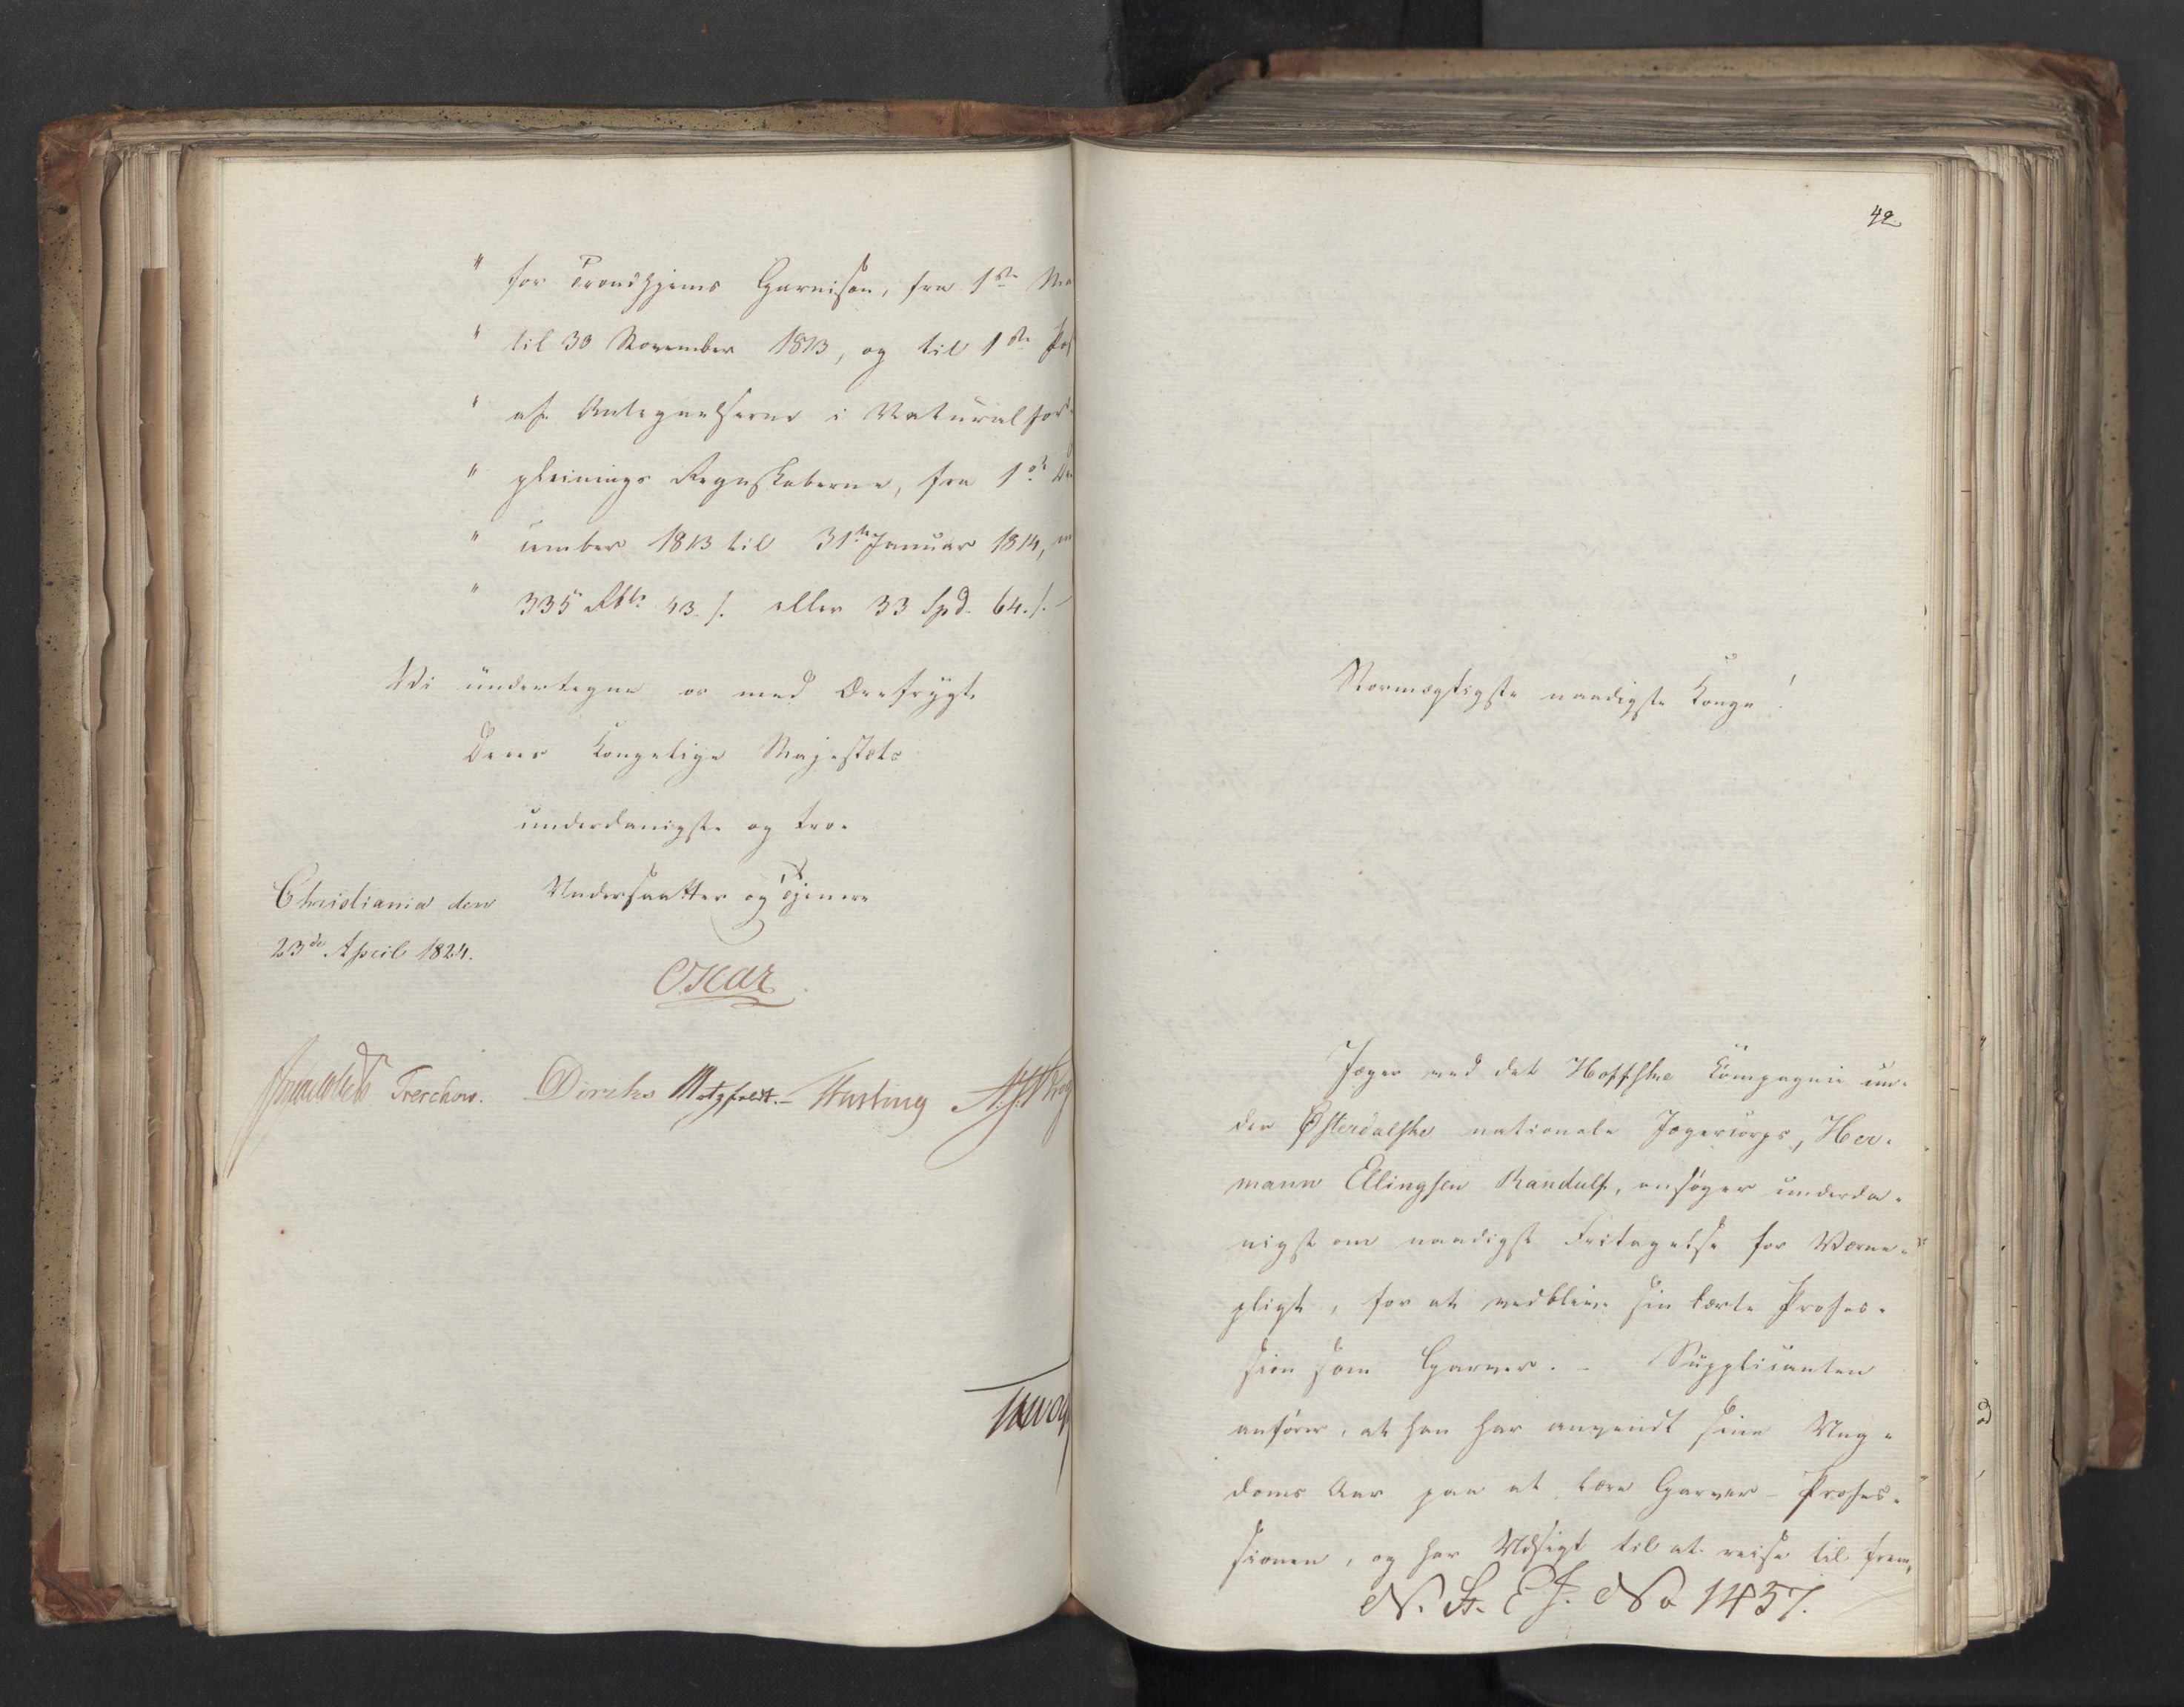 " for Trondhjems Garnison, fra 1ste Ma
" til 30 November 1813, og til 1ste Pos
" af Antegnelserne i Naturalfor-
" pleinings Regnskaberne, fra 1ste De
" cember 1813 til 31te Januar 1814, m
" 335 Rbd. 43 s. eller 33 Spd. 64 s.
Vi undertegne os med Ærefrygt
Deres Kongelige Majestæts
underdanigste og troe
Undersaatter og Tjenere
Christiania den
23de April 1824.
Oscar
Treschow. Diriks Motzfeldt. Fasting
42
Stormægtigste naadigste Konge!
Jæger ved det Hoffske Compagnie un-
der Østerdalske nationale Jægercorps, Her-
mann Ellingsen Randulf, ansøger underda-
nigst om naadigst Fritagelse for Værne-
pligt, for at vedblive sin lærte Profes-
sion som Garver. - Supplicanten
anfører, at han har anvendt sine Ung-
doms Aar paa at lære Garver-Profes-
sionen, og har Udsigt til at reise til frem-
N. St. E J. No 1457.